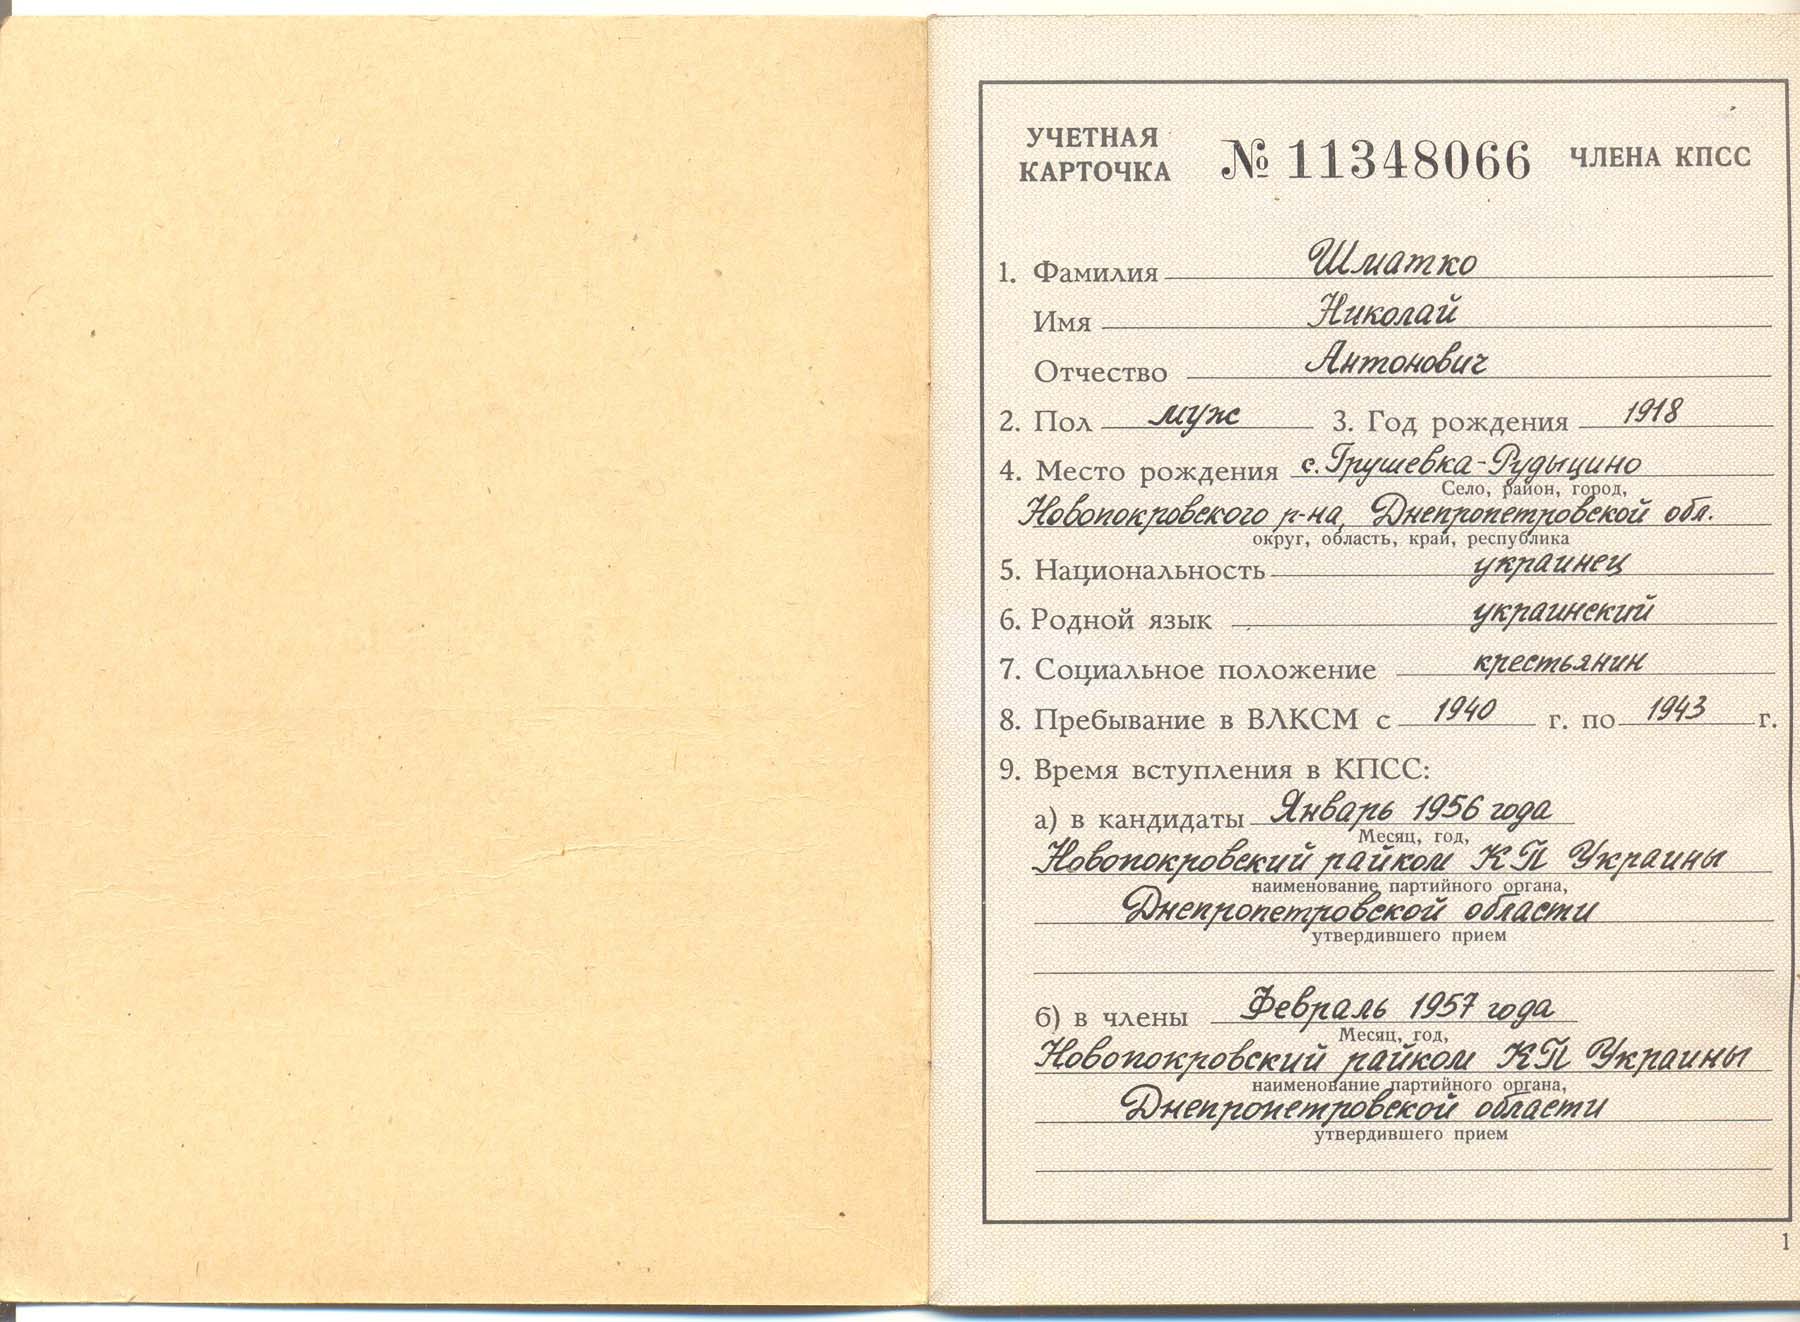 УЧЕТНАЯ
КАРТОЧКА № 11348066 ЧЛЕНА КПСС
1. Фамилия Шматко
Имя Николай
Отчество Антонович
2. Пол муж 3. Год рождения 1918
4. Место рождения с. Грушевка-Рудыцино
Село, район, город,
Новопокровского р-на, Днепропетровской обл.
округ, область, край, республика
5. Национальность украинец
6. Родной язык украинский
7. Социальное положение крестьянин
8. Пребывание в ВЛКСМ с 1940 г. по 1943 г.
9. Время вступления в КПСС:
а) в кандидаты Январь 1956 года
Месяц, год,
Новопокровский райком КП Украины
наименование партийного органа,
Днепропетровской области
утвердившего прием
б) в члены Февраль 1957 года
Месяц, год,
Новопокровский райком КП Украины
наименование партийного органа,
Днепропетровской области
утвердившего прием
1